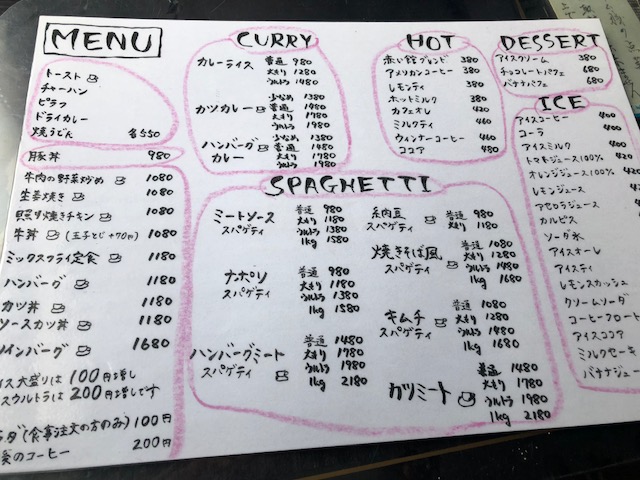 MENU
トースト
チャーハン
ピラフ
ドライカレー
焼うどん 各550
豚丼 980
牛肉の野菜炒め 1080
生姜焼き 1080
照り焼きチキン 1080
牛丼 (玉子とじ+70円) 1080
ミックスフライ定食 1180
ハンバーグ 1180
カツ丼 1180
ソースカツ丼 1180
ツインバーグ 1680
イス大盛りは 100円増し
スウルトラは 200円増しです
ラダ(食事注文の方のみ) 100円
後のコーヒー 200円
CURRY
カレーライス 普通 980
大もり 1280
ウルトラ 1480
カツカレー 少なめ 1380
普通 1480
大もり 1780
ウルトラ 1980
ハンバーグカレー 普通 1480
大もり 1780
ウルトラ 1980
HOT
赤い館ブレンド 380
アメリカンコーヒー 380
レモンティ 380
ホットミルク 380
カフェオレ 440
ミルクティ 460
ウィンナーコーヒー 460
ココア 480
DESSERT
アイスクリーム 380
チョコレートパフェ 680
バナナパフェ 680
ICE
アイスコーヒー 400
コーラ 400
アイスミルク 400
トマトジュース100% 420
オレンジジュース100% 420
レモンジュース
アセロラジュース
カルピス
ソーダ水
アイスオーレ
アイスティ
レモンスカッシュ
クリームソーダ
コーヒーフロート
アイスココア
ミルクセーキ
バナナジュー
SPAGHETTI
ミートソース 普通 980
スパゲティ 大もり 1180
ウルトラ 1380
1kg 1580
ナポリ 普通 980
スパゲティ 大もり 1180
ウルトラ 1380
1kg 1580
ハンバーグミート 普通 1480
スパゲティ 大もり 1780
ウルトラ 1980
1kg 2180
納豆 普通 980
スパゲティ 大もり 1180
焼きそば風 普通 1080
スパゲティ 大もり 1280
ウルトラ 1480
1kg 1680
キムチ 普通 1080
スパゲティ 大もり 1280
ウルトラ 1480
1kg 1680
カツミート 普通 1480
大もり 1780
ウルトラ 1980
1kg 2180